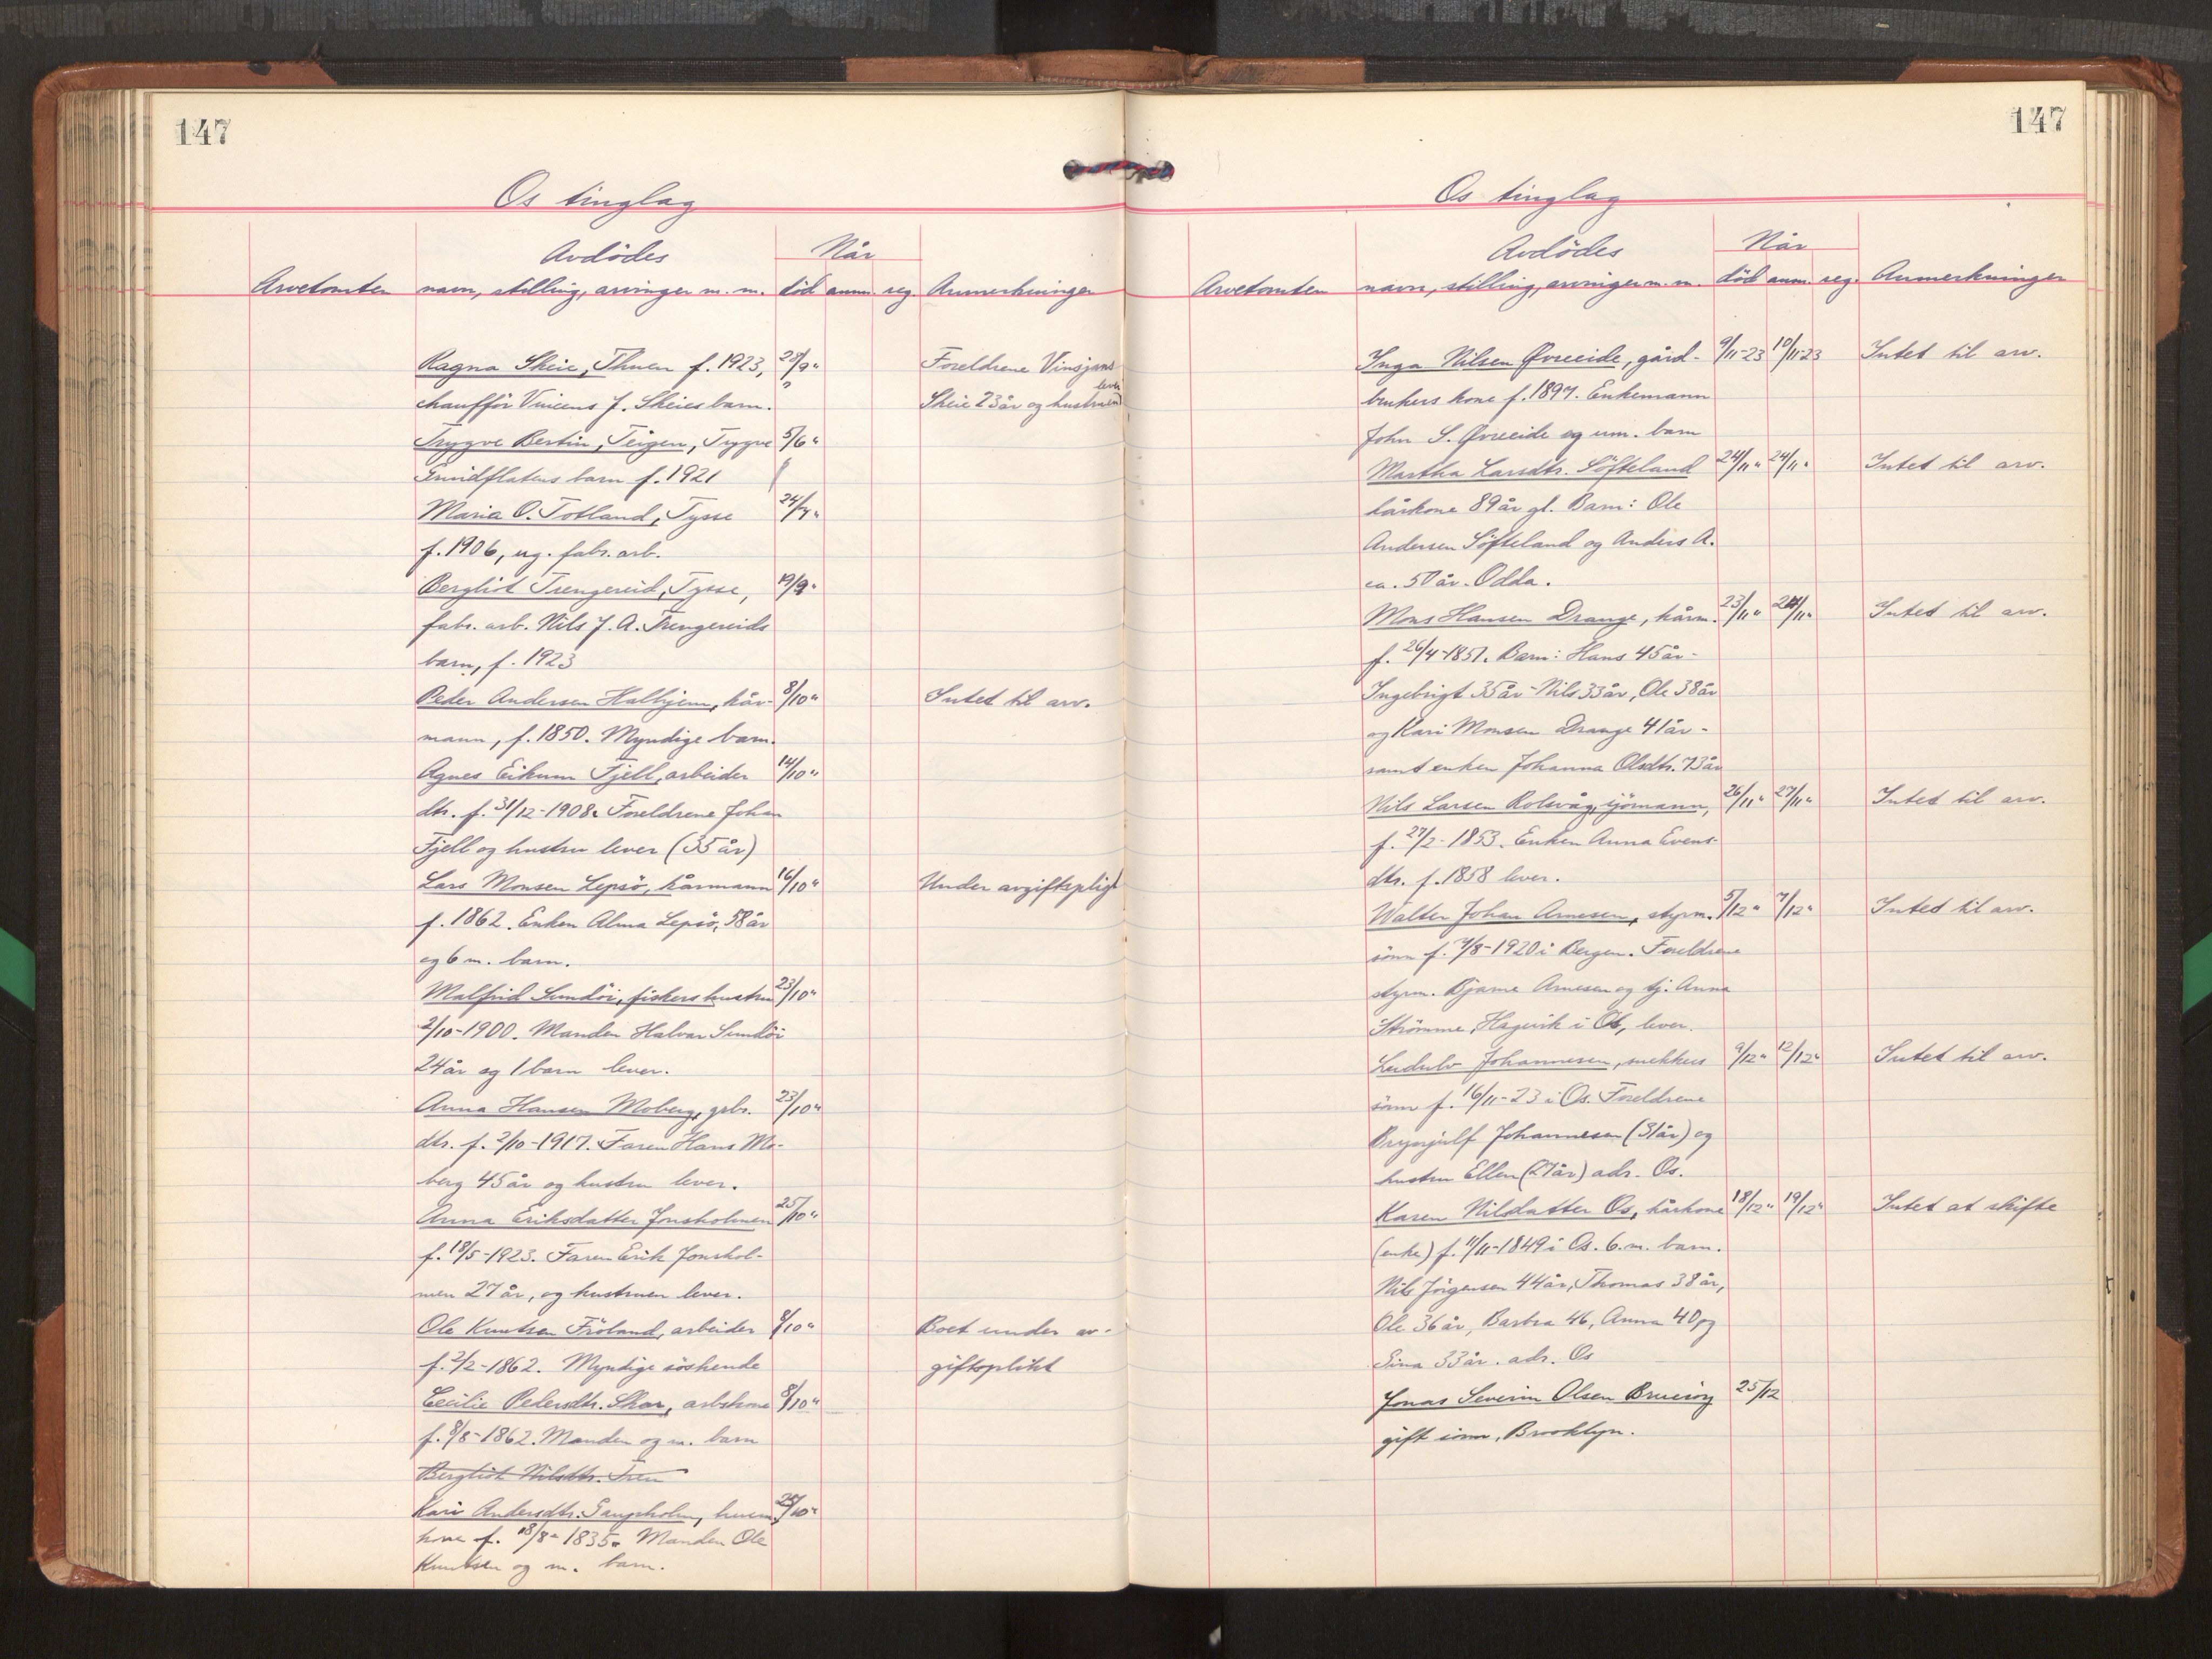 147
Os tinglag
Avdödes
Når
Arvetomten navn, stilling, arvinger m. m. död anm. reg. Anmerkninger
Ragna Skeie, Thuen f. 1923, 28/9" Foreldrene Vinsjans
chaufför Vincens J. Skeies barn. Skeie 23 år og hustruen lever
Trygve Bertin, Teigen, Trygve 5/6"
barn f. 1921
Maria O. Totland, Tysse 24/7"
f. 1906, ug. fabr. arb.
Bergliot Trengereid, Tysse, 19/9"
fabr. arb. Nils J. A. Trengereids
barn, f. 1923
Peder Andersen Halhjem, kår- 8/10" Intet til arv.
mann, f. 1850. Myndige barn.
Agnes Eikum Fjell, arbeider 14/10"
dtr. f. 31/12-1908. Foreldrene Johan
Fjell og hustru lever (35 år)
Lars Monsen Lepsö, kårmann 16/10" Under avgiftspligt
f. 1862. Enken Alma Lepsö, 58 år
og 6 m. barn.
Malfrid Sundöi, fiskers hustru 23/10"
2/10-1900. Manden Halvar Sundöi
24 år og 1 barn lever.
Anna Hansen Moberg, grbr. 23/10"
dtr. f. 2/10-1917. Faren Hans Mo-
berg 45 år og hustru lever.
Anna Eriksdatter Jonsholmen 25/10"
f. 18/5-1923. Faren Erik Jonshol-
men 27 år, og hustruen lever.
Ole Knutsen Fröland, arbeider 8/10" Boet under av-
f. 2/2-1862. Myndige söskende giftsplikt
Cecilie Pedersdtr. Skar, arbskone 8/10"
f. 8/8-1862. Manden og m. barn
Bergliot Nilsdtr. Tren
Kari Andersdtr. Gaupholm, husm. 25/10"
kone f. 18/8-1835. Manden Ole
Knutsen og m. barn.
147
Os tinglag
Avdödes
Når
Arvetomten navn, stilling, arvinger m. m. död anm. reg. Anmerkninger
Inga Nilsen Øvreeide, gård- 9/11-23 10/11-23 Intet til arv.
brukers kone f. 1897. Enkemann
John S. Øvreeide og um. barn
Martha Larsdtr. Söfteland 24/11" 24/11" Intet til arv.
kårkone 89 år gl. Barn: Ole
Andersen Söfteland og Anders A.
ca. 50 år. Odda.
Mons Hansen Drange, kårm. 23/11" 24/11" Intet til arv.
f. 26/4-1851. Barn: Hans 45 år -
Ingebrigt 35 år - Nils 33 år, Ole 38 år
og Kari Monsen Drange 41 år -
samt enken Johanna Olsdtr. 73 år
Nils Larsen Rolsvåg, sjömann, 26/11" 27/11" Intet til arv.
f. 27/2-1853. Enken Anna Evens-
dtr. f. 1858 lever.
Walter Johan Arnesen, styrm. 5/12" 7/12" Intet til arv.
sönn f. 7/8-1920 i Bergen. Foreldrene
styrm. Bjarne Arnesen og tj. Anna
Strömme, Hagevik i Os, lever.
Leidulv Johannesen, snekkers 9/12" 12/12" Intet til arv.
sönn f. 16/11-23 i Os. Foreldrene
Brynjulf Johannesen (31 år) og
hustru Ellen (27 år) adr. Os.
Karen Nilsdatter Os, kårkone 18/12" 19/12" Intet at skifte
(enke) f. 11/11-1849 i Os. 6. m. barn.
Nils Jörgensen 44 år, Thomas 38 år,
Ole 36 år, Barbra 46, Anna 40 og
Sina 33 år. adr. Os
Jonas Severin Olsen Bruerøy 25/12
gift sönn, Brooklyn.